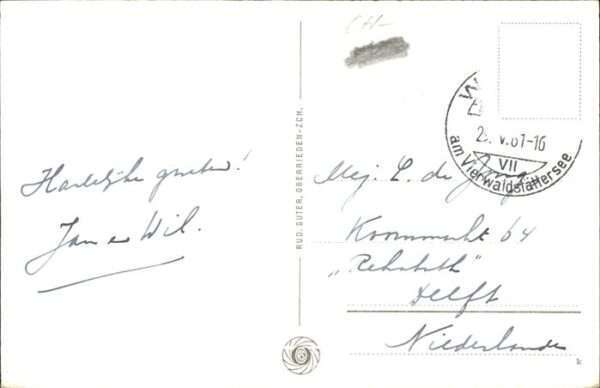 Hartelijke groeten!
Jan e Wil.
RUD. SUTER, OBERRIEDEN-ZCH.
CH-
W
V.61-16
VII
am Vierwaldstättersee
Mej. L. de Jong
Koornmarkt 64
„Rehoboth"
Delft
Niederlande